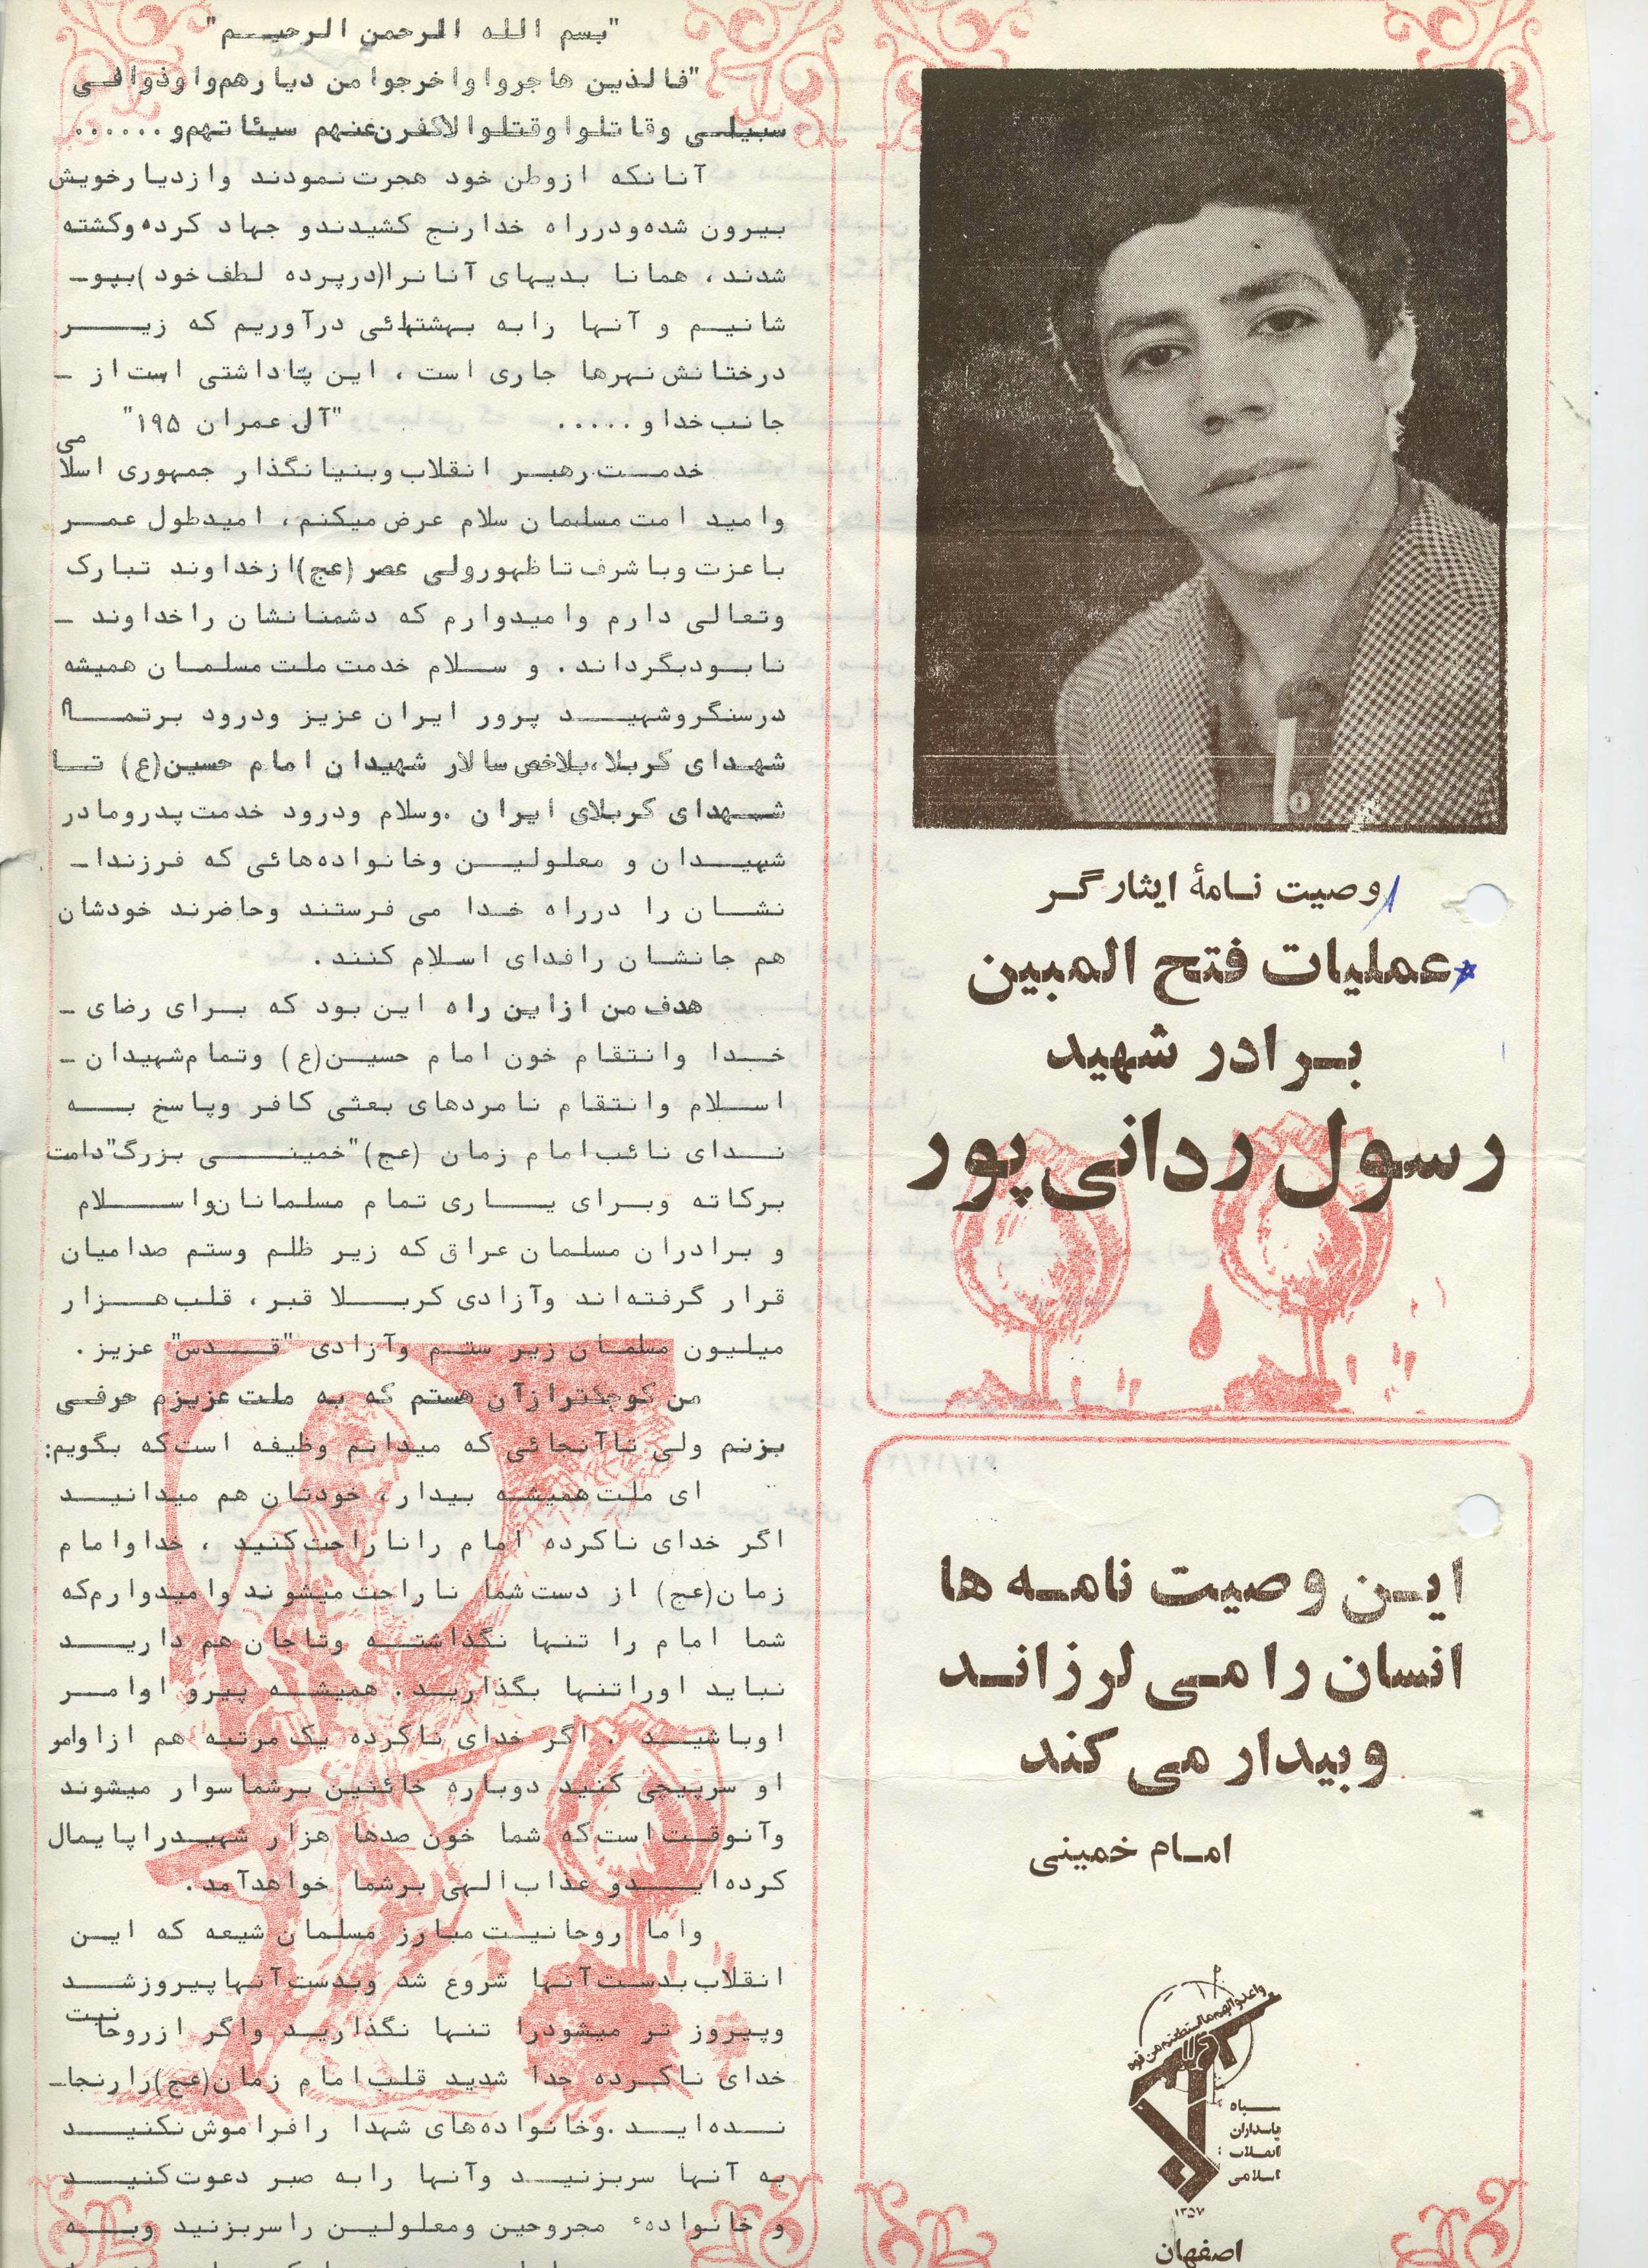 وصیت نامهٔ ایثارگر
عملیات فتح المبین
برادر شهید
رسول ردانی پور
این وصیت نامه ها
انسان را می لرزاند
و بیدار می کند
امام خمینی
سپاه
پاسداران
انقلاب
اسلامی
۱۳۵۷
اصفهان
"بسم الله الرحمن الرحیم"
"فالذین هاجروا واخرجوا من دیارهم واوذوا فی
سبیلی وقاتلوا وقتلوا لاکفرن عنهم سیئاتهم و......
آنانکه ازوطن خود هجرت نمودند وازدیارخویش
بیرون شده ودرراه خدا رنج کشیدندو جهاد کرده وکشته
شدند، همانا بدیهای آنانرا(درپرده لطف خود)بپو-
شانیم و آنها رابه بهشتهائی درآوریم که زیر
درختانش نهرها جاری است، این پاداشتی است از -
جانب خدا و..... "آل عمران ۱۹۵"
خدمت رهبر انقلاب وبنیانگذار جمهوری اسلامی
وامید امت مسلمان سلام عرض میکنم، امیدطول عمر
باعزت وباشرف تاظهورولی عصر (عج)ازخداوند تبارک
وتعالی دارم وامیدوارم که دشمنانشان راخداوند -
نابودبگرداند. و سلام خدمت ملت مسلمان همیشه
درسنگروشهید پرور ایران عزیز ودرود برتمام
شهدای کربلا،بلاخص سالار شهیدان امام حسین(ع) تا
شهدای کربلای ایران .وسلام ودرود خدمت پدرومادر
شهیدان و معلولین وخانواده هائی که فرزندا-
نشان را درراه خدا می فرستند وحاضرند خودشان
هم جانشان رافدای اسلام کنند.
هدف من ازاین راه این بود که برای رضای -
خدا وانتقام خون امام حسین(ع) وتمام شهیدان -
اسلام وانتقام نامردهای بعثی کافر وپاسخ به
ندای نائب امام زمان (عج)"خمینی بزرگ"دامت
برکاته وبرای یاری تمام مسلمانان واسلام
و برادران مسلمان عراق که زیر ظلم وستم صدامیان
قرار گرفته اند وآزادی کربلا قبر، قلب هزار
میلیون مسلمان زیر ستم وآزادی "قدس" عزیز.
من کوچکترازآن هستم که به ملت عزیزم حرفی
بزنم ولی تاآنجائی که میدانم وظیفه است که بگویم:
ای ملت همیشه بیدار، خودتان هم میدانید
اگر خدای ناکرده امام راناراحت کنید ، خداوامام
زمان(عج) از دست شما ناراحت میشوند وامیدوارم که
شما امام را تنها نگذاشته وتاجان هم دارید
نباید اوراتنها بگذارید. همیشه پیرو اوامر
اوباشید . اگر خدای ناکرده یک مرتبه هم ازاوامر
او سرپیچی کنید دوباره خائنین برشما سوار میشوند
وآنوقت است که شما خون صدها هزار شهیدراپایمال
کرده ایدو عذاب الهی برشما خواهدآمد.
واما روحانیت مبارز مسلمان شیعه که این
انقلاب بدست آنها شروع شد وبدست آنهاپیروزشد
وپیروز تر میشودرا تنها نگذارید واگر ازروحانیت
خدای ناکرده جدا شدید قلب امام زمان(عج)رارنجا-
نده اید .وخانواده های شهدا رافراموش نکنید
به آنها سربزنید وآنها رابه صبر دعوت کنید
و خانوادهٔ مجروحین ومعلولین راسربزنید وبه